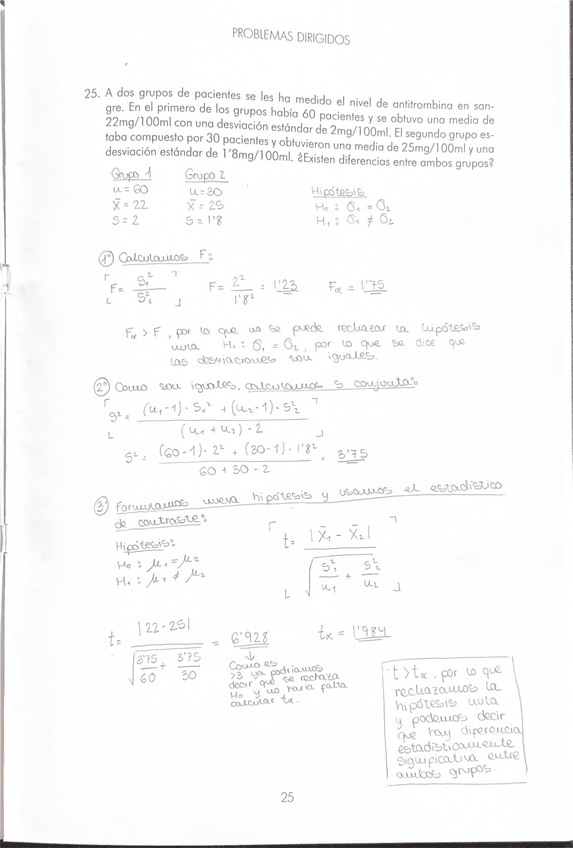 PROBLEMAS DIRIGIDOS
25. A dos grupos de pacientes se les ha medido el nivel de antitrombina en san-
gre. En el primero de los grupos había 60 pacientes y se obtuvo una media de
22mg/100ml con una desviación estándar de 2mg/100ml. El segundo grupo es-
taba compuesto por 30 pacientes y obtuvieron una media de 25mg/100ml y una
desviación estándar de 1'8mg/100ml. ¿Existen diferencias entre ambos grupos?
Grupo 1 Grupo 2
n = 60 n = 30 Hipótesis
x̄ = 22 x̄ = 25 H₀ : σ₁ = σ₂
S = 2 S = 1'8 H₁ : σ₁ ≠ σ₂
1º Calculamos F:
F = S₁² / S₂² F = 2² / 1'8² = 1'23 Fα = 1'75
Fα > F, por lo que no se puede rechazar la hipótesis
nula H₀ : σ₁ = σ₂, por lo que se dice que
las desviaciones son iguales.
2º Como son iguales, calculamos S conjunta:
S² = (n₁-1) · S₁² + (n₂-1) · S₂² / (n₁ + n₂) - 2
S² = (60-1) · 2² + (30-1) · 1'8² / 60 + 30 - 2 = 3'75
3º Formulamos nueva hipótesis y usamos el estadístico
de contraste:
Hipótesis:
H₀ : μ₁ = μ₂
H₁ : μ₁ ≠ μ₂
t = |x̄₁ - x̄₂| / √(S₁²/n₁ + S₂²/n₂)
t = |22-25| / √(3'75/60 + 3'75/30) = 6'928 tα = 1'984
↓
Como es
>3 ya podríamos
decir que se rechaza
H₀ y no haría falta
calcular tα.
t > tα, por lo que
rechazamos la
hipótesis nula
y podemos decir
que hay diferencia
estadísticamente
significativa entre
ambos grupos.
25